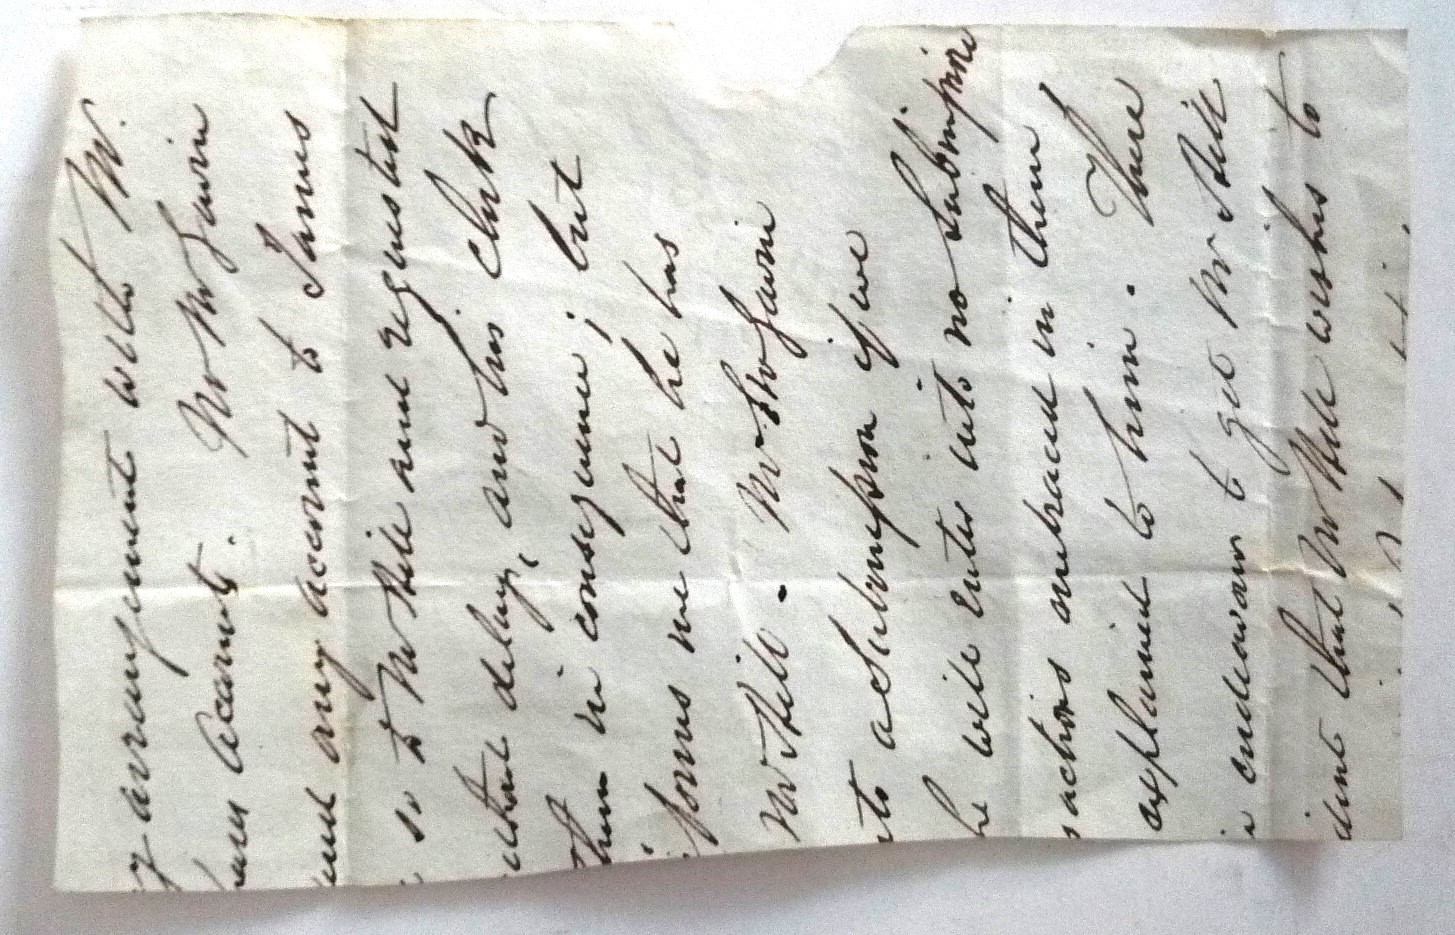 y arrangement with M.
have accounts. Mr
and any account to James
so to Mr Hill and request
without delay, and his clerk
them in consequence; but
forms me that he has
Mr Hill. Mr
to a submission if we
he will enter into no submission
sactions embraced in them
explained to him. There
endeavour to get Mr Hill
that Mr Hill wishes to